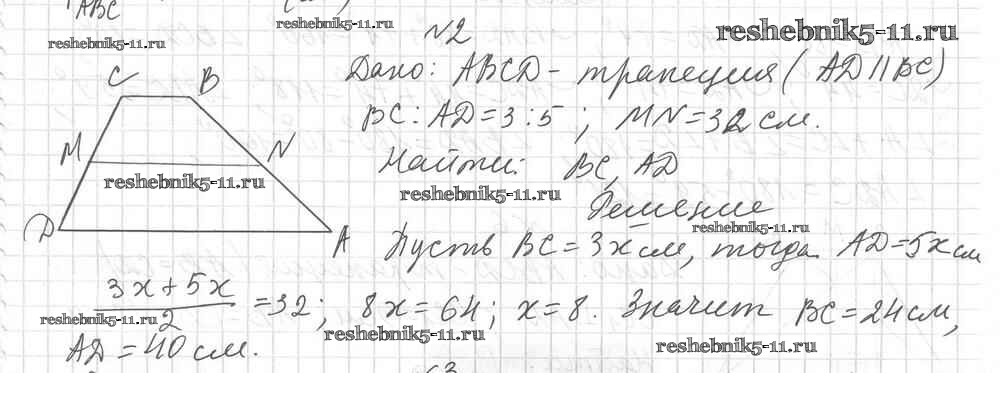 ABC
reshebnik5-11.ru
reshebnik5-11.ru
№2
reshebnik5-11.ru
C B
Дано: ABCD - трапеция (AD||BC)
BC : AD = 3 : 5 ; MN = 32 см.
M N
reshebnik5-11.ru
Найти: BC, AD
reshebnik5-11.ru
Решение
reshebnik5-11.ru
D A
Пусть BC = 3x см, тогда AD = 5x см
(3x + 5x)/2 = 32; 8x = 64; x = 8. Значит BC = 24 см,
reshebnik5-11.ru
reshebnik5-11.ru
reshebnik5-11.ru
AD = 40 см.